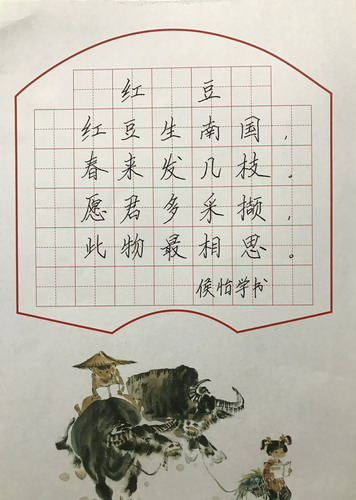 红豆
红豆生南国，
春来发几枝。
愿君多采撷，
此物最相思。
侯怡学书